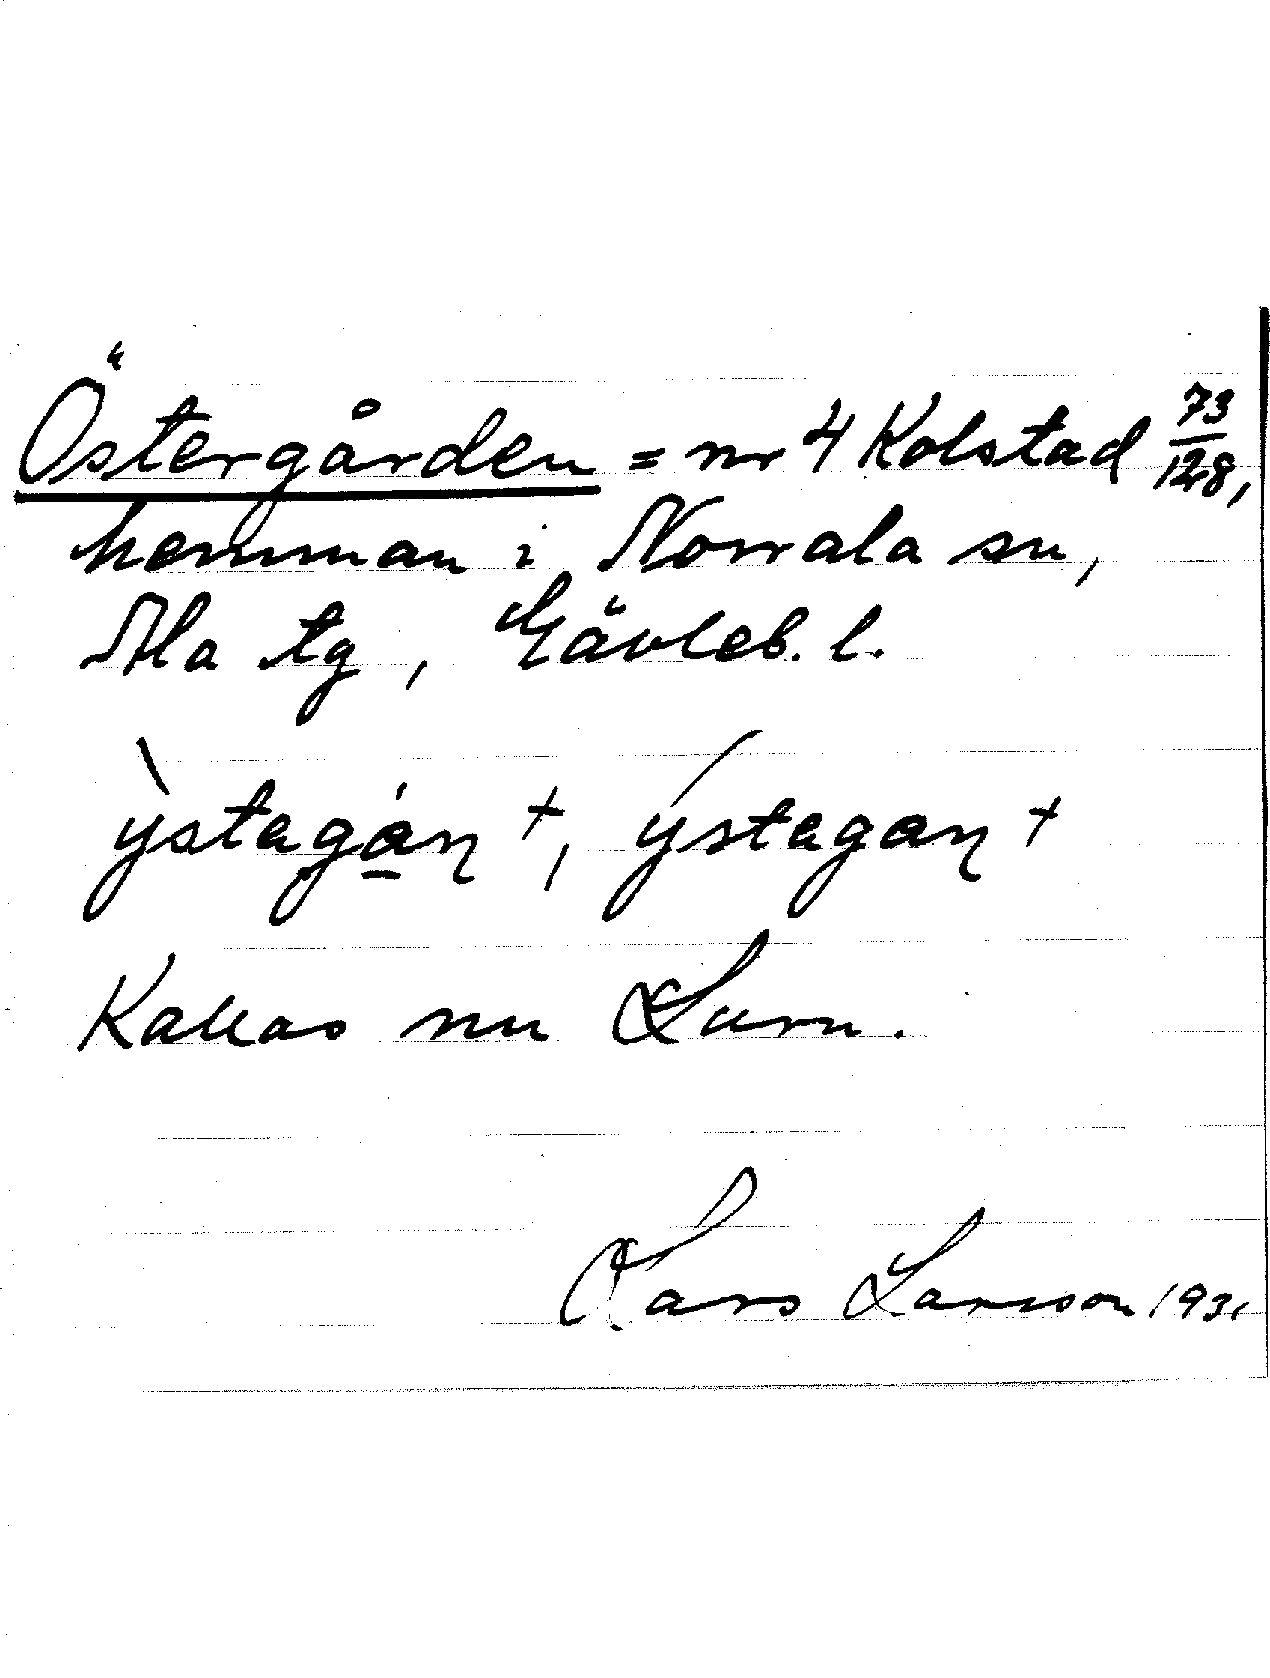 Östergården = nr 4 Kolstad 73/128,
hemman i Norrala sn,
Ala tg, Gävleb. l.
ỳstagán +, ýstagan +
Kallas nu Lurn.
Lars Larsson 1931